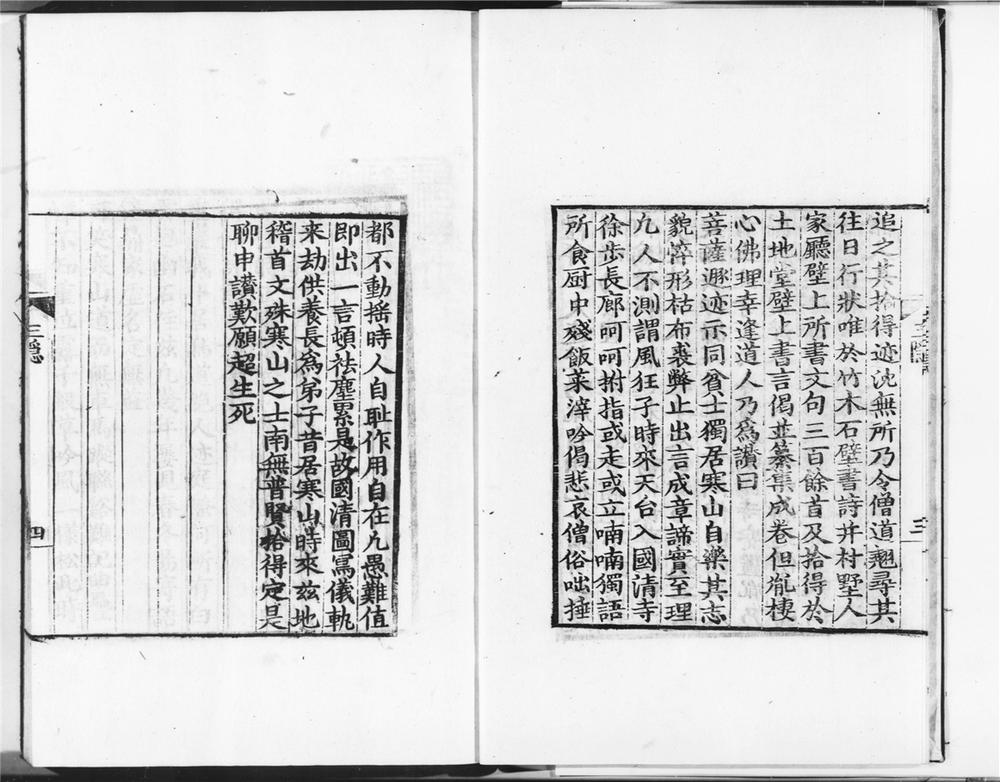 追之其拾得迹沈無所乃令僧道翹尋其
往日行狀唯於竹木石壁書詩幷村墅人
家廳壁上所書文句三百餘首及拾得於
土地堂壁上書言偈並纂集成卷但胤棲
心佛理幸逢道人乃爲讚曰
菩薩遯迹示同貧士獨居寒山自樂其志
貌悴形枯布裘弊止出言成章諦實至理
凡人不測謂風狂子時來天台入國清寺
徐步長廊呵呵拊指或走或立喃喃獨語
所食厨中殘飯菜滓吟偈悲哀僧俗咄捶
三
都不動搖時人自耻作用自在凡愚難值
即出一言頓祛塵累是故國清圖寫儀軌
来劫供養長爲弟子昔居寒山時來兹地
稽首文殊寒山之士南無普賢拾得定是
聊申讃歎願超生死
三隱
四